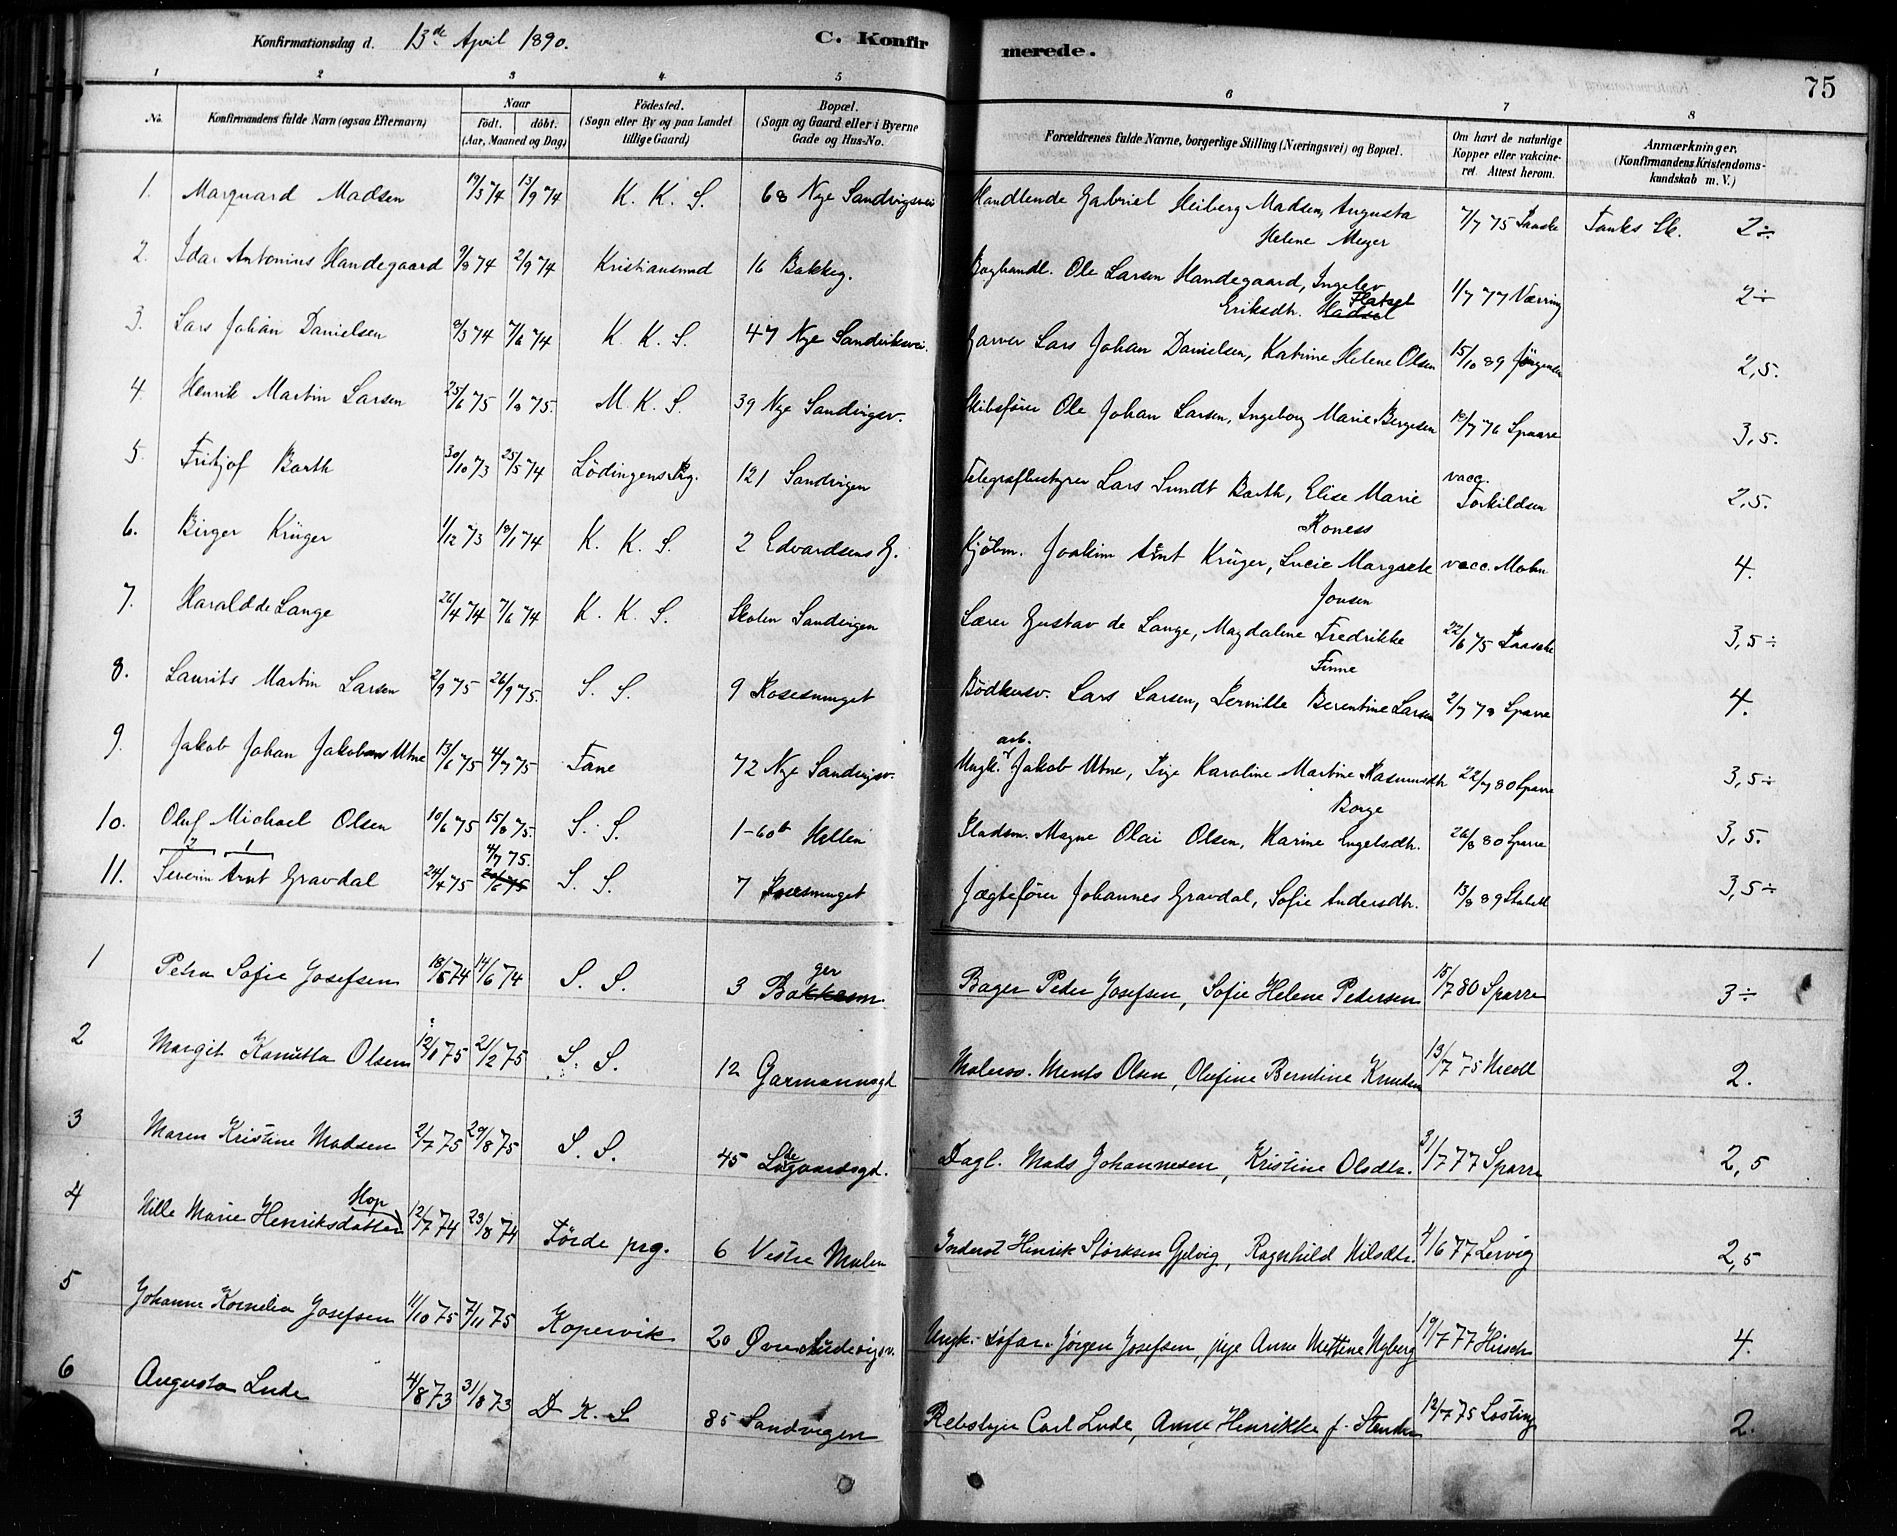 Konfirmationsdag d. 13de April 1890. C. Konfirmerede. 75
1 2 3 4 5 6 7 8
No. Konfirmandens fulde Navn (ogsaa Efternavn) Naar født. døbt. (Aar, Maaned og Dag) Födested. (Sogn eller By og paa Landet tillige Gaard) Bopæl. (Sogn og Gaard eller i Byerne Gade og Hus-No. Forældrenes fulde Navne, borgerlige Stilling (Næringsvei) og Bopæl. Om havt de naturlige Kopper eller vakcineret. Attest herom. Anmærkninger. (Konfirmandens Kristendomskundskab m. V.)
1. Marquard Madsen 19/3 74 13/9 74 K. K. S. 68 Nye Sandvigsvei Handlende Gabriel Heiberg Madsen, Augusta Helene Meyer 7/7 75 Tanks Sk. 2 ÷
2. Idar Antonius Handegaard 9/8 74 2/9 74 Kristiansund 16 Bakkeg. Boghandl. Ole Larsen Handegaard, Ingelev Eriksdtr. Hadsel Flatset 1/7 77 Nærring 2 ÷
3. Lars Johan Danielsen 8/3 74 7/6 74 K. K. S. 47 Nye Sandviksvei. Garver Lars Johan Danielsen, Katrine Helene Olsen 15/10 89 Jørgensen 2,5.
4. Henrik Martin Larsen 25/6 75 1/8 75. M. K. S. 39 Nye Sandvigsv. Skibsfører Ole Johan Larsen, Ingeborg Marie Bergesen 10/7 76 Sparre 3,5.
5. Fritjof Barth 30/10 73 25/5 74 Lödingens Prg. 121 Sandvigen Telegrafbestyrer Lars Sundt Barth, Elise Marie Roness vacc. Torkildsen 2,5.
6. Birger Krüger 1/12 73 18/1 74 K. K. S. 2 Edvardsens G. Kjøbm. Joakim Arnt Krüger, Lucie Margrete Jonsen vacc. Mohn 4.
7. Harald de Lange 26/4 74 7/6 74 K. K. S. Skolen Sandvigen Lærer Gustav de Lange, Magdalene Fredrikke Finne 22/6 75 3,5 ÷
8. Laurits Martin Larsen 2/9 75 26/9 75. S. S. 9 Rosesmuget Bödkersv. Lars Larsen, Pernille Berentine Larsen 2/7 78 Sparre 4.
9. Jakob Johan Jakobsen Utne 13/6 75 4/7 75 Fane 72 Nye Sandvigsv. Ungk. arb. Jakob Utne, Pige Karoline Martine Rasmusdtr Borge 22/7 80 Sparre 3,5 ÷
10. Oluf Michael Olsen 10/6 75 15/8 75. S. S. 1-60b Hellen Pladsm. Magne Olai Olsen, Karine Engelsdtr. 26/8 80 Sparre 3,5.
11. Severin Arnt Gravdal 24/4 75 4/7 75. 20/6 75 S. S. 7 Rosesmuget Jægtefører Johannes Gravdal, Sofie Andersdtr. 13/8 89 3,5 ÷
1 Petra Sofie Josefsen 18/5 74 14/6 74 S. S. 3 Bakkesm ger Bager Peder Josefsen, Sofie Helene Pedersen 15/7 80 Sparre 3 ÷
2 Margit Kanutta Olsen 12/1 75 21/2 75 S. S. 12 Garmannsgd Malersv. Ments Olsen, Olufine Berntine Knudsen 13/7 75 Nicoll 2.
3 Maren Kristine Madsen 2/7 75 29/8 75 S. S. 45 Ladegaardsgd. Dagl. Mads Johannesen, Kristine Olsdtr. 31/7 77 Sparre 2,5
4 Nille Marie Henriksdatter Hop 12/7 74 23/8 74 Förde prg. 6 Vestre Mulen Inderst Henrik Størksen Gjelvig, Ragnhild Nilsdtr. 4/6 77 Lervig 2,5
5 Johanne Kornelia Josefsen 11/10 75 7/11 75 Kopervik 20 Øvre Ungk. Sofar. Jørgen Josefsen, pige Anne Mettine Nyberg 19/7 77 Hirsch 4.
6 Augusta Lude 4/8 73 31/8 73 D. K. S 85 Sandvigen Rebslager Carl Lude, Anne Henrikke f. 12/7 75 Losting 2.